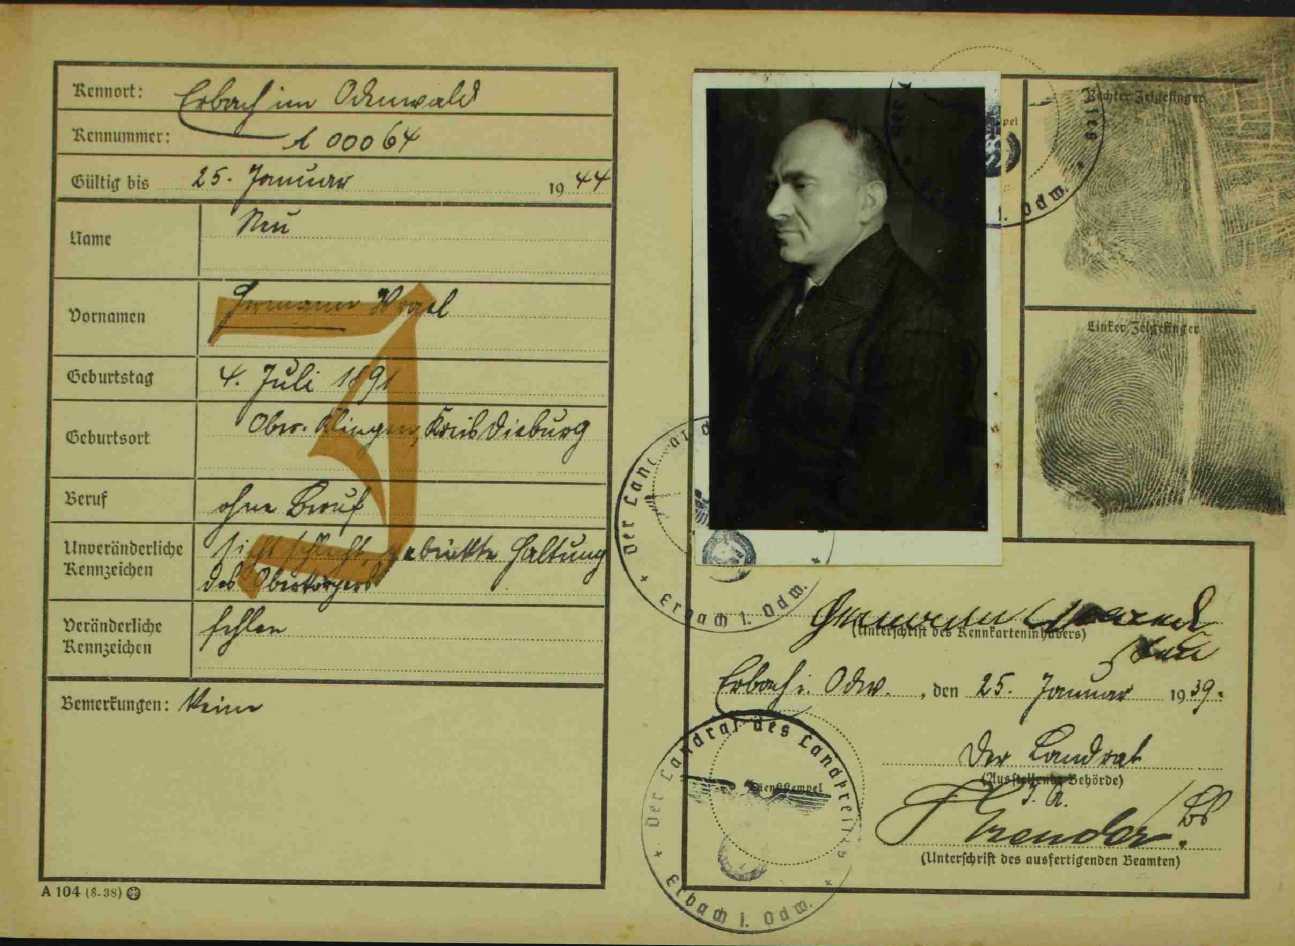 Kennort: Erbach im Odenwald
Kennummer: A 00064
Gültig bis 25. Januar 1944
Name Neu
Vornamen Hermann Israel
Geburtstag 4. Juli 1891
Geburtsort Ober-Klingen, Kreis Dieburg
Beruf ohne Beruf
Unveränderliche Kennzeichen sieht schlecht, gebückte Haltung
des Oberkörpers
Veränderliche Kennzeichen fehlen
Bemerkungen: Keine
J
A 104 (8. 38)
Rechter Zeigefinger
Linker Zeigefinger
Der Landrat
Erbach i. Odw.
Hermann Israel
(Unterschrift des Kennkarteninhabers)
Neu
Erbach i. Odw., den 25. Januar 1939.
Der Landrat
(Ausstellende Behörde)
(Unterschrift des ausfertigenden Beamten)
Der Landrat des Landkreises
Erbach i. Odw.